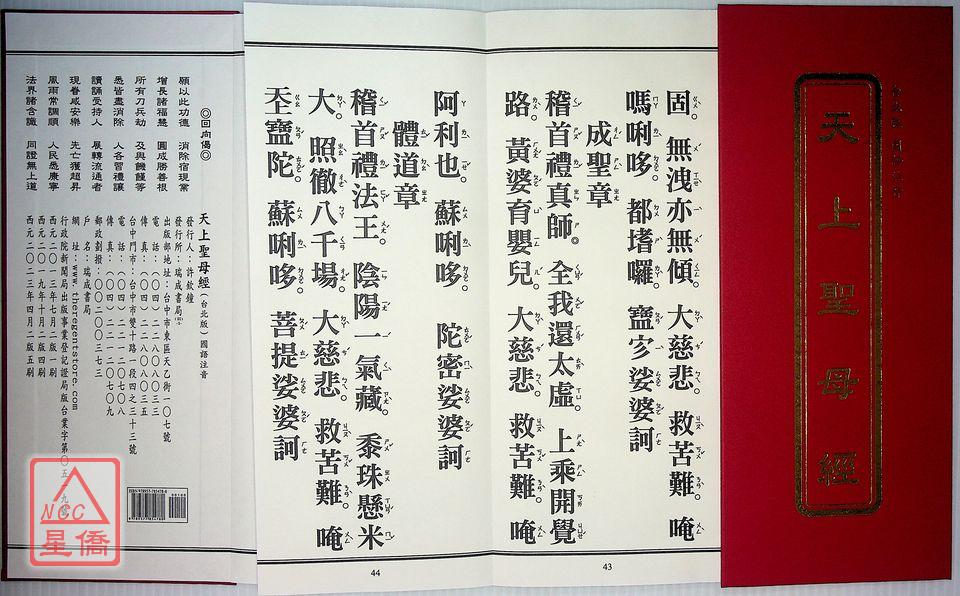 天上聖母經
固。無洩亦無傾。大慈悲。救苦難。唵
嗎唎哆。都堵囉。娑婆訶
成聖章
稽首禮真師。全我還太虛。上乘開覺
路。黃婆育嬰兒。大慈悲。救苦難。唵
43
阿利也。蘇唎哆。陀密娑婆訶
體道章
稽首禮法王。陰陽一氣藏。黍珠懸米
大。照徹八千場。大慈悲。救苦難。唵
寶陀。蘇唎哆。菩提娑婆訶
44
◎回向偈◎
願以此功德 消除宿現業
增長諸福慧 圓成勝善根
所有刀兵劫 及與饑饉等
悉皆盡消除 人各習禮讓
讀誦受持人 展轉流通者
現眷咸安樂 先亡獲超昇
風雨常調順 人民悉康寧
法界諸含識 同證無上道
天上聖母經(台北版)國語注音
發行人:許欽鐘
發行所:瑞成書局
出版部地址:台中市東區天乙街一〇七號
電話:(〇四)二二一二〇七〇八
台中門市:台中市雙十路一段四之三十三號
郵政劃撥:〇〇二〇〇三七三
戶名:瑞成書局
網址:www.theregentstore.com
行政院新聞局出版事業登記證局版台業字第〇五一九號
西元二〇一三年七月二版一刷
西元二〇一九年十月二版四刷
西元二〇二三年四月二版五刷
NCC
星僑